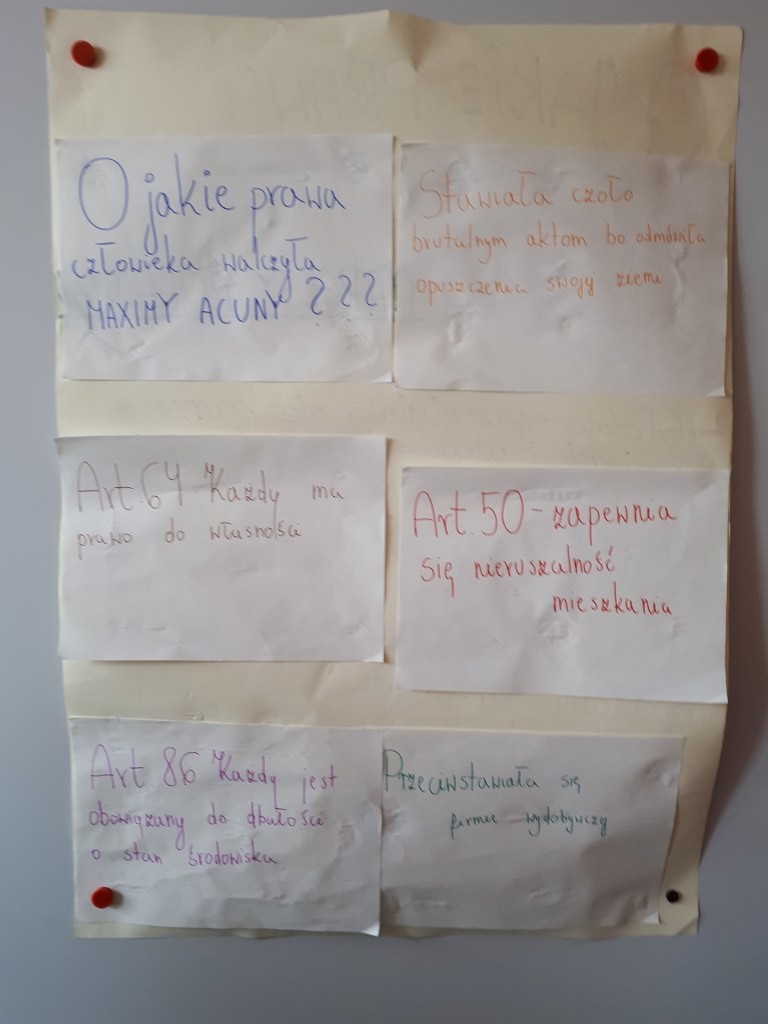 O jakie prawa
człowieka walczyła
MAXIMY ACUNY ???
Stawiała czoło
brutalnym aktom bo odmówiła
opuszczenia swojy ziemi
Art. 64 Każdy ma
prawo do własności
Art. 50 - zapewnia
się nieruszalność
mieszkania
Art. 86 Każdy jest
obowiązany do dbałości
o stan środowiska
Przeciwstawiała się
firmie wydobywczy